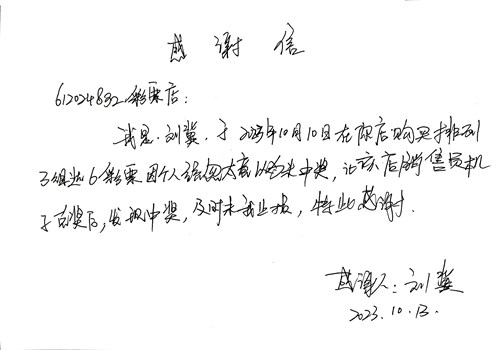 感谢信
612024832彩票店：
我是刘冀，于2023年10月10日在你店购买排列
3组选6彩票因个人疏忽大意以为未中奖，让该店店销售员扔机
子兑奖后，发现中奖，及时未我止报，特此感谢。
感谢人：刘冀
2023.10.13.